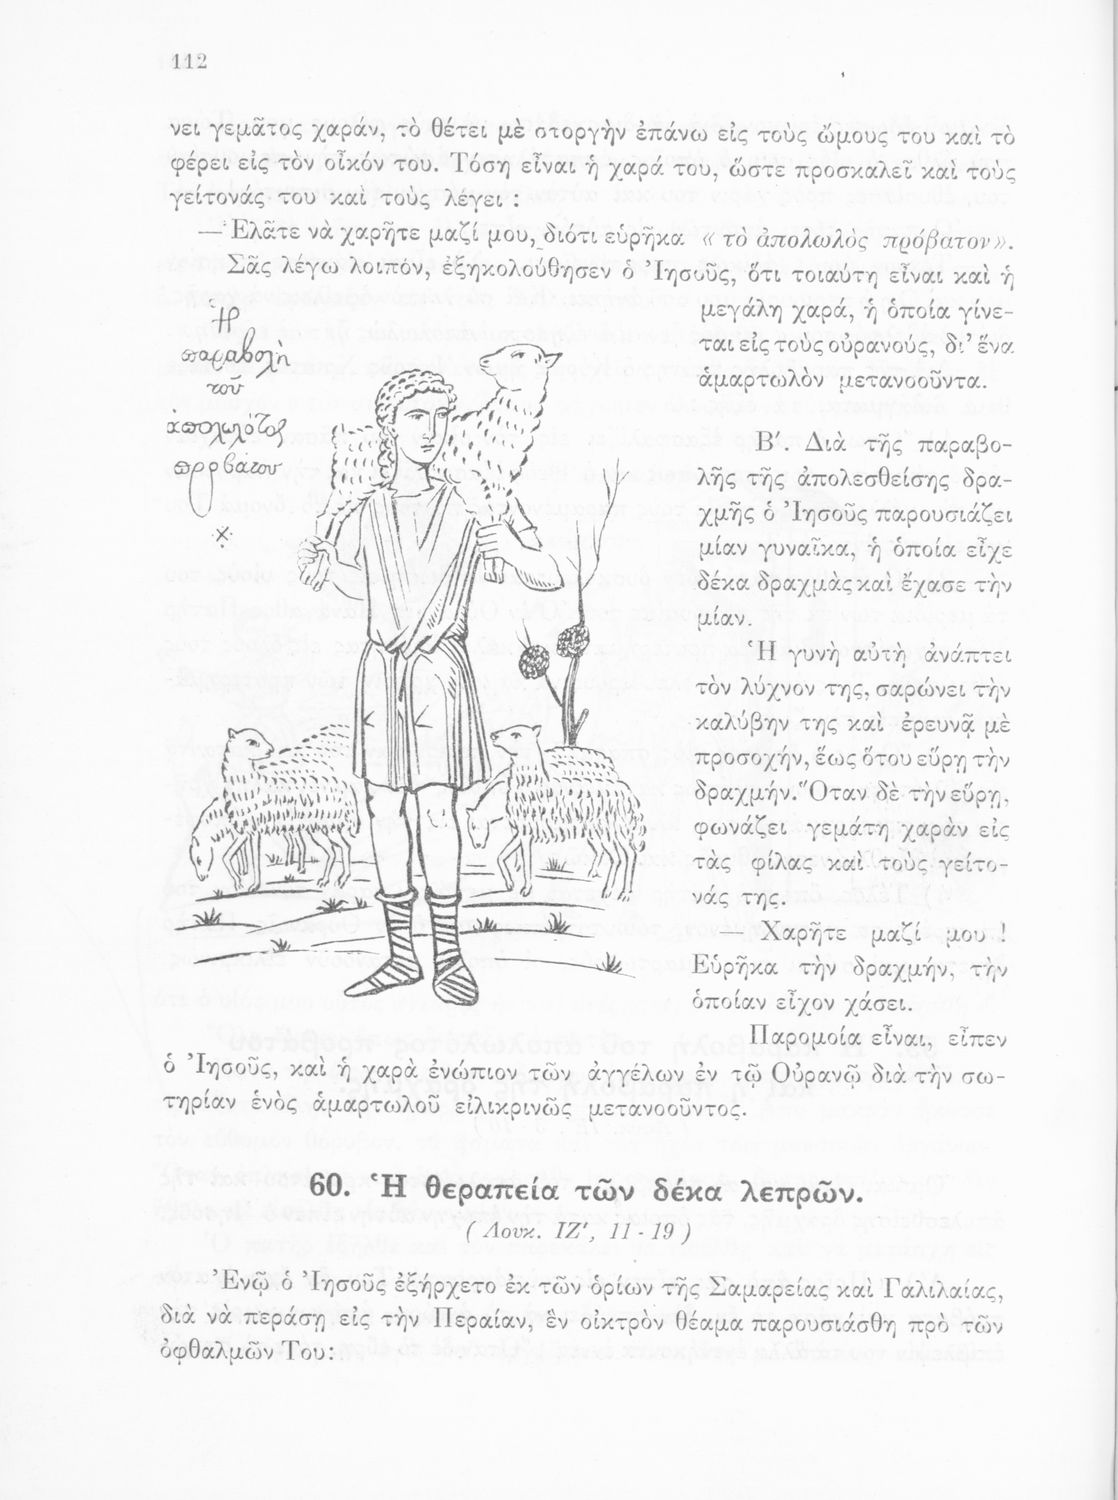 112
νει γεμᾶτος χαράν, τὸ θέτει μὲ στοργὴν ἐπάνω εἰς τοὺς ὤμους του καὶ τὸ
φέρει εἰς τὸν οἶκόν του. Τόση εἶναι ἡ χαρά του, ὥστε προσκαλεῖ καὶ τοὺς
γείτονάς του καὶ τοὺς λέγει :
— Ἐλᾶτε νὰ χαρῆτε μαζί μου, διότι εὑρῆκα « τὸ ἀπολωλὸς πρόβατον».
Σᾶς λέγω λοιπόν, ἐξηκολούθησεν ὁ Ἰησοῦς, ὅτι τοιαύτη εἶναι καὶ ἡ
μεγάλη χαρά, ἡ ὁποία γίνε-
ται εἰς τοὺς οὐρανούς, δι’ ἕνα
ἁμαρτωλὸν μετανοοῦντα.
Ἡ
παραβολὴ
τοῦ
ἀπολωλότος
προβάτου
Β′. Διὰ τῆς παραβο-
λῆς τῆς ἀπολεσθείσης δρα-
χμῆς ὁ Ἰησοῦς παρουσιάζει
μίαν γυναῖκα, ἡ ὁποία εἶχε
δέκα δραχμὰς καὶ ἔχασε τὴν
μίαν.
Ἡ γυνὴ αὐτὴ ἀνάπτει
τὸν λύχνον της, σαρώνει τὴν
καλύβην της καὶ ἐρευνᾷ μὲ
προσοχήν, ἕως ὅτου εὕρῃ τὴν
δραχμήν. Ὅταν δὲ τὴν εὕρῃ,
φωνάζει γεμάτη χαρὰν εἰς
τὰς φίλας καὶ τοὺς γείτο-
νάς της.
—Χαρῆτε μαζί μου !
Εὑρῆκα τὴν δραχμήν, τὴν
ὁποίαν εἶχον χάσει.
Παρομοία εἶναι, εἶπεν
ὁ Ἰησοῦς, καὶ ἡ χαρὰ ἐνώπιον τῶν ἀγγέλων ἐν τῷ Οὐρανῷ διὰ τὴν σω-
τηρίαν ἑνὸς ἁμαρτωλοῦ εἰλικρινῶς μετανοοῦντος.
60. Ἡ θεραπεία τῶν δέκα λεπρῶν.
( Λουκ. ΙΖ′, 11 - 19 )
Ἐνῷ ὁ Ἰησοῦς ἐξήρχετο ἐκ τῶν ὁρίων τῆς Σαμαρείας καὶ Γαλιλαίας,
διὰ νὰ περάσῃ εἰς τὴν Περαίαν, ἓν οἰκτρὸν θέαμα παρουσιάσθη πρὸ τῶν
ὀφθαλμῶν Του: